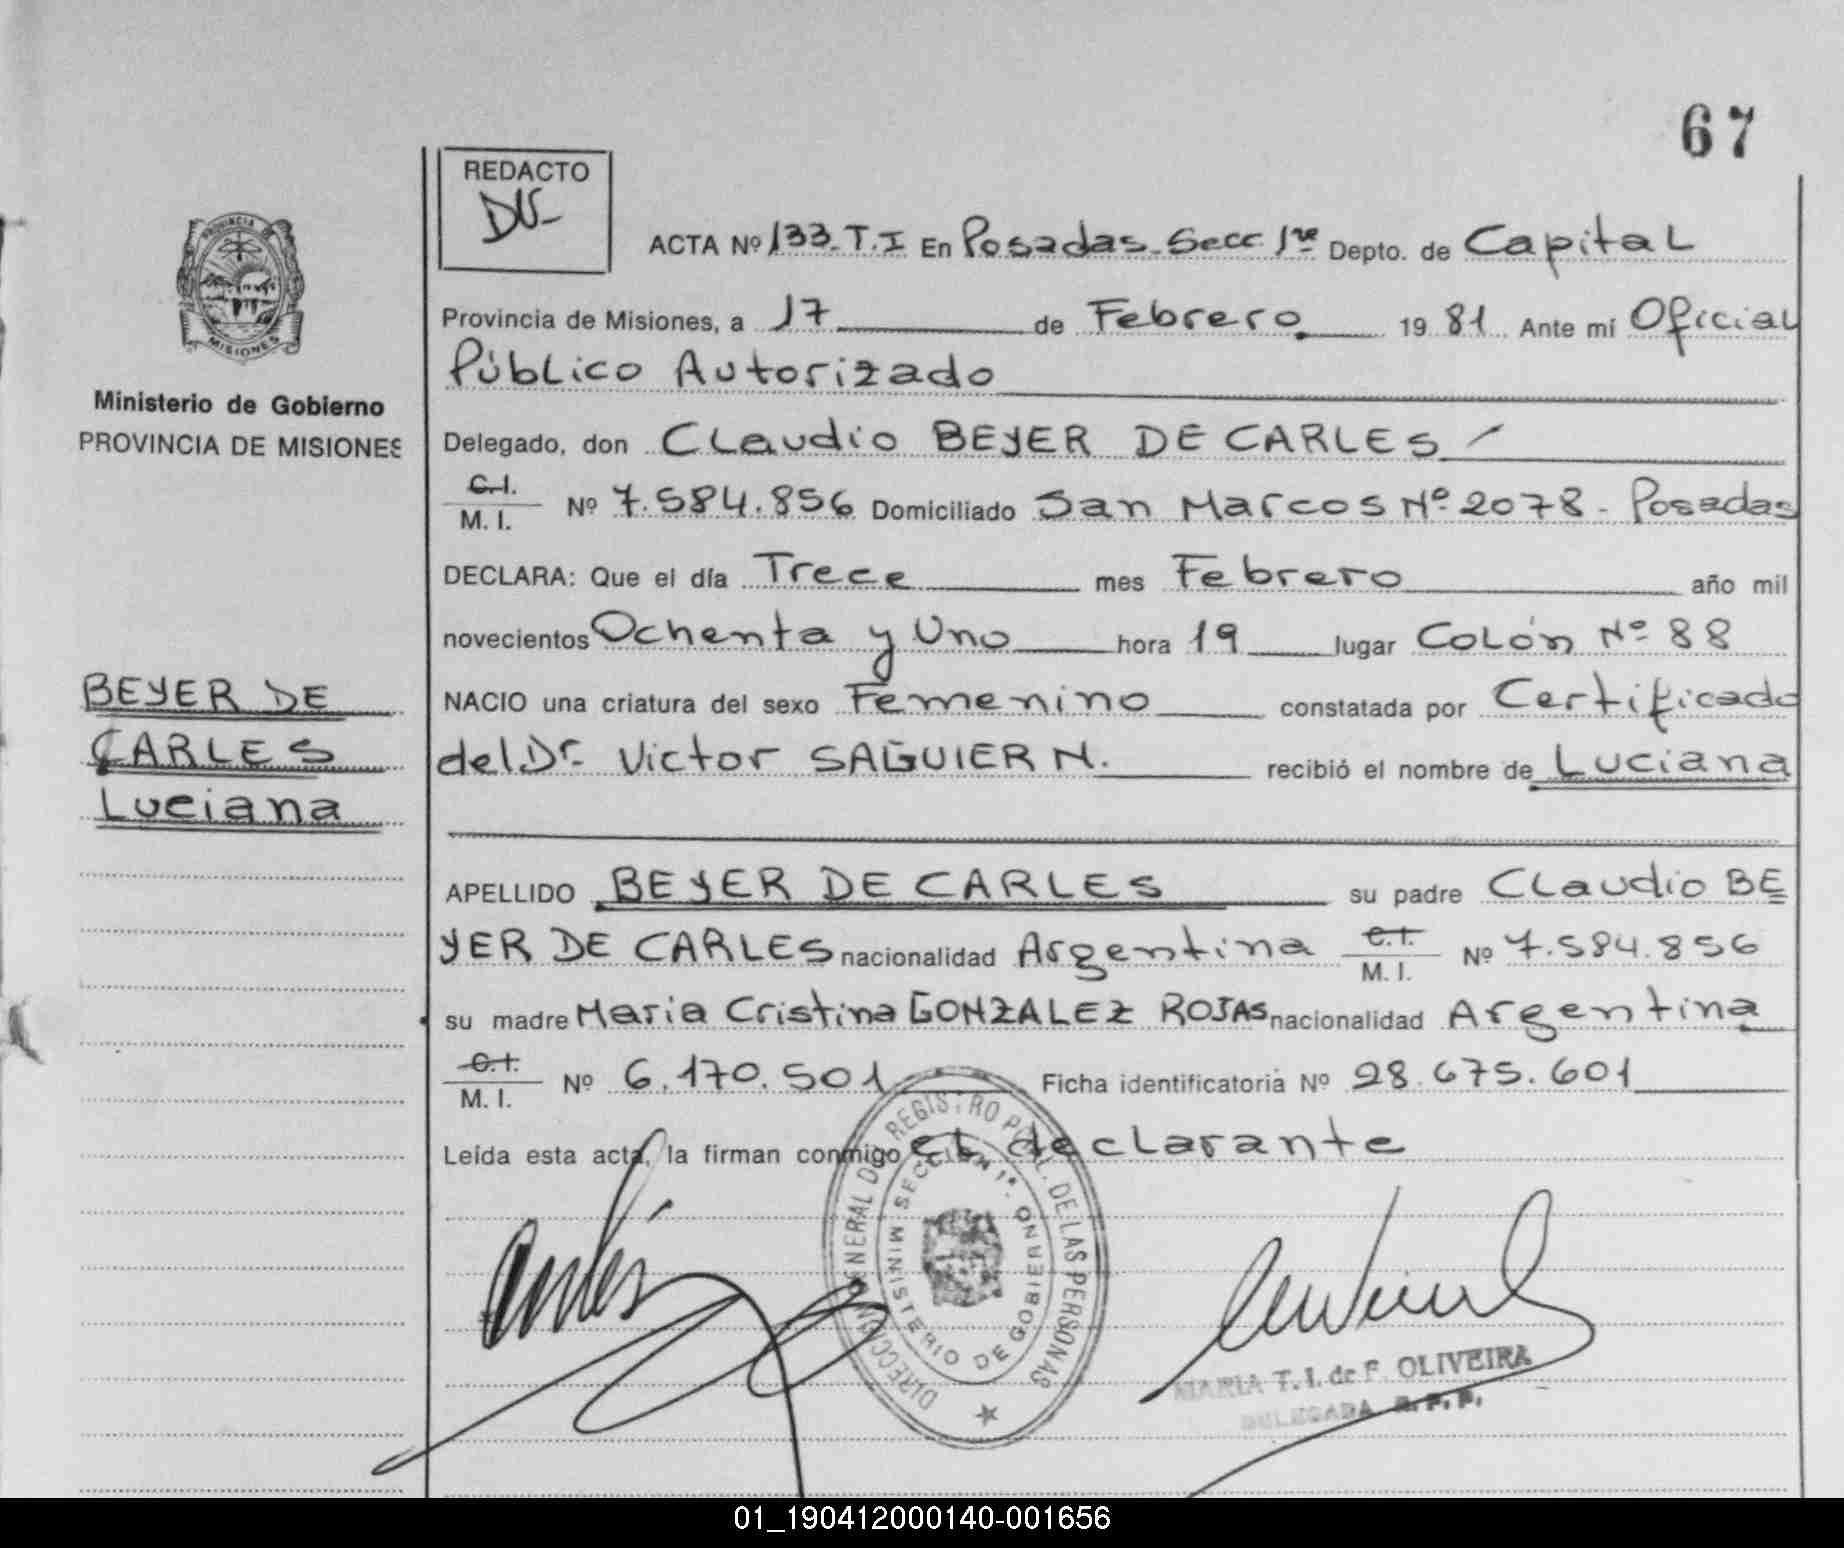 67
REDACTO
DV-
ACTA Nº 133-T.I En Posadas-Secc. 1ra Depto. de Capital
PROVINCIA DE
MISIONES
Provincia de Misiones, a 17 de Febrero 1981 Ante mí Oficial
Público Autorizado
Ministerio de Gobierno
PROVINCIA DE MISIONES
Delegado, don Claudio BEYER DE CARLES
C.I.
M. I. Nº 7.584.856 Domiciliado San Marcos Nº 2078 - Posadas
DECLARA: Que el día Trece mes Febrero año mil
novecientos Ochenta y Uno hora 19 lugar Colón Nº 88
BEYER DE
CARLES
Luciana
NACIO una criatura del sexo Femenino constatada por Certificado
del Dr. Victor SAGUIER N. recibió el nombre de Luciana
APELLIDO BEYER DE CARLES su padre Claudio BE
YER DE CARLES nacionalidad Argentina C.I. M. I. Nº 7.584.856
su madre Maria Cristina GONZALEZ ROJAS nacionalidad Argentina
C.I.
M. I. Nº 6.170.501 Ficha identificatoria Nº 28.675.601
Leída esta acta, la firman conmigo el declarante
DIRECCION GENERAL DEL REGISTRO PCIAL. DE LAS PERSONAS
SECCION 1ª.
MINISTERIO DE GOBIERNO
MARIA T. I. de F. OLIVEIRA
DELEGADA R. P. P.
01_190412000140-001656